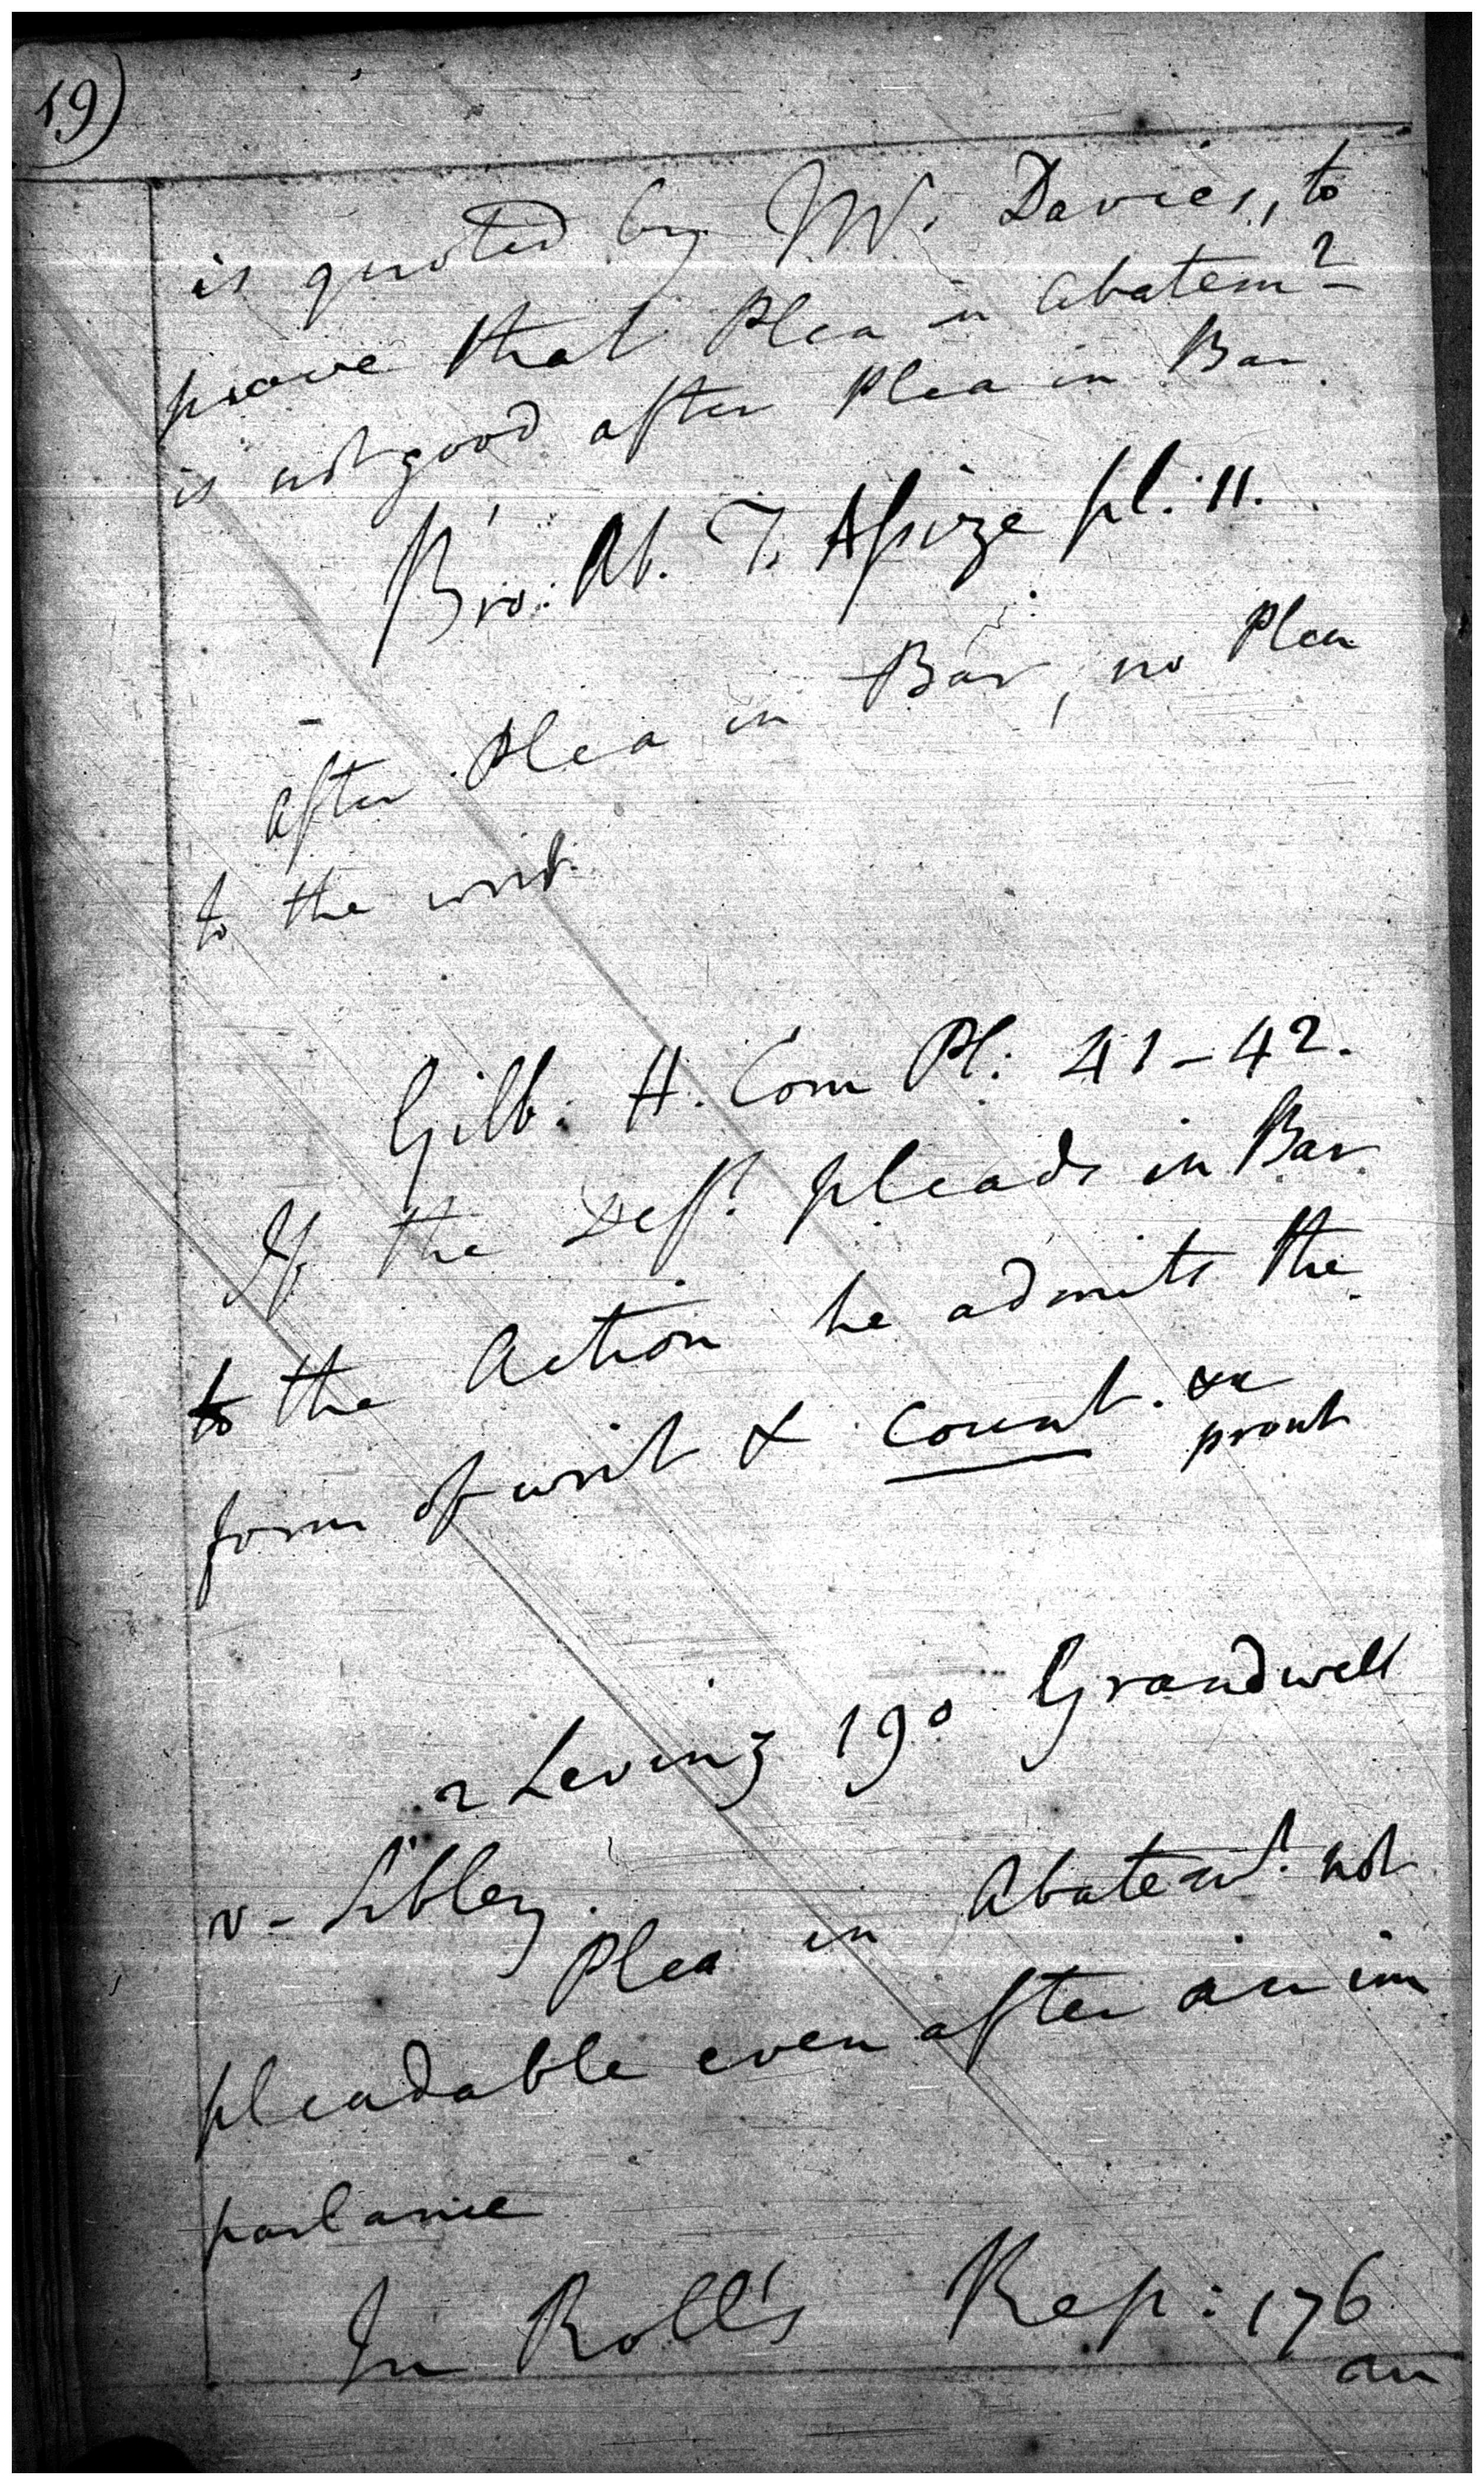 19)
is quoted by Mr. Davies, to
prove that Plea in abatemt
is not good after Plea in Bar.
Bro: Ab. T. Assize pl: 11.
after Plea in Bar, no Plea
to the writ.
Gilb: H. Com Pl: 41-42.
If the Deft. pleads in Bar
to the Action he admits the
form of writ & count.
prout
2 Levinz 190 Grandwell
v- Sibley.
Plea in Abatemt. not
pleadable even after an im
parlance
In Roll's Rep: 176
an